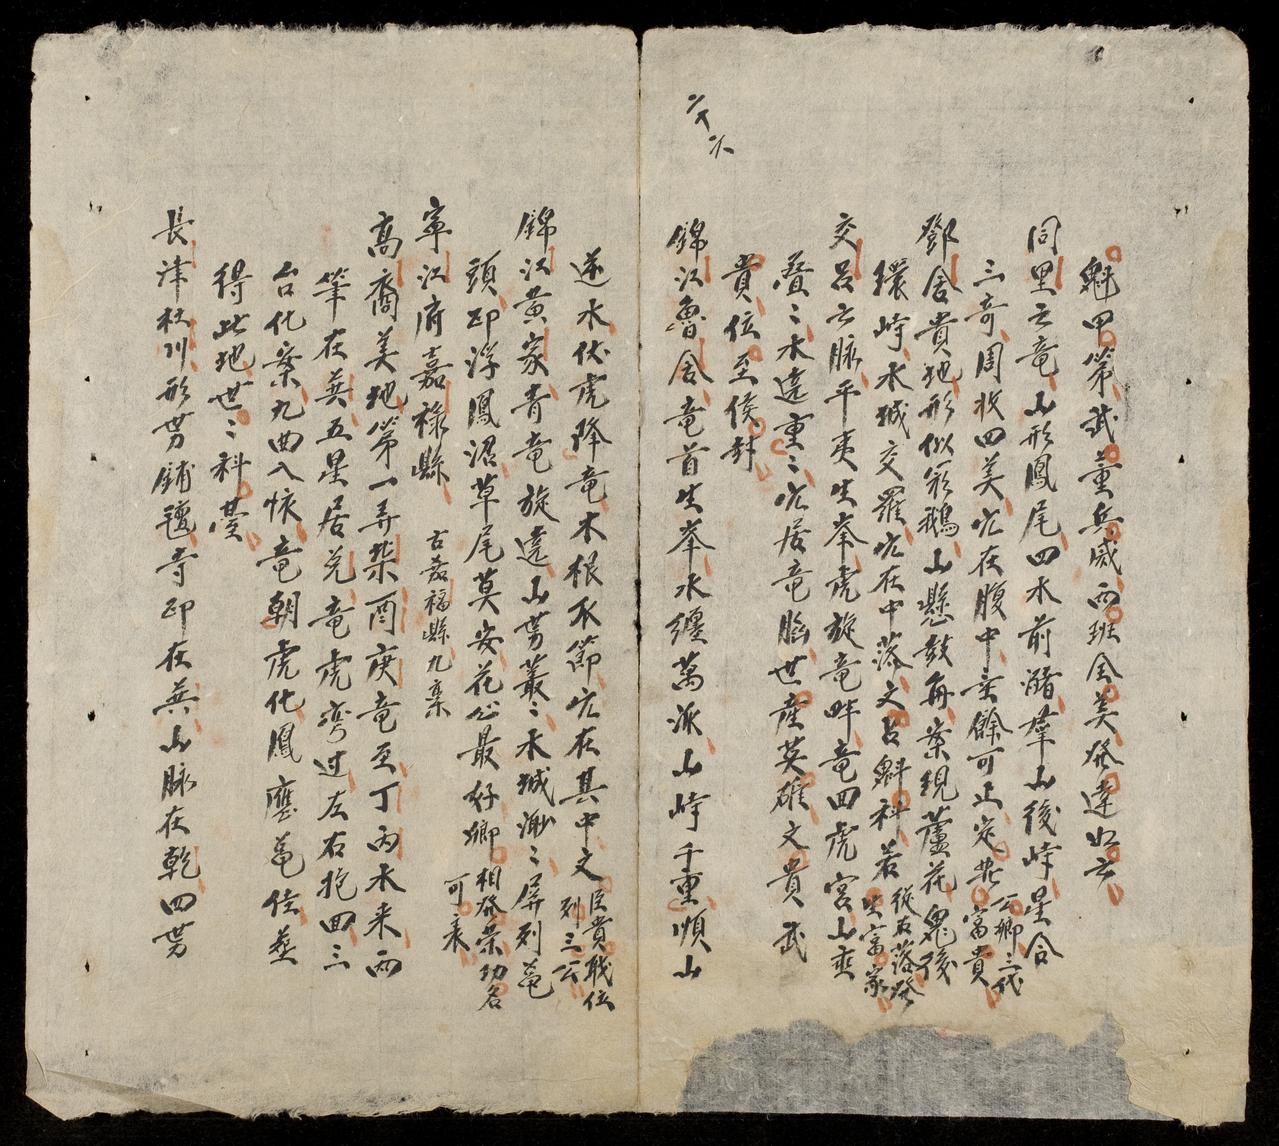 二十六
魁甲第武董兵威両班舍美発達如云
同里云竜山形鳳尾四水前瀦羣山後峙星合
三奇周收四美穴在腹中玄餘可正定葬富貴
公卿三代
鄧舍貴地形似鵝山懸鼓角案現蘆花鬼後
環峙水城交羅穴在中落文占魁科若
從右落発
生富家
交呂云脉平夷生峯虎旋竜畔竜回虎宮山垂
疊〻水遶重〻穴居竜腦世産英雄文貴武
貴位至侯封
錦江魯舍竜首生峯水纏萬派山峙千重順山
逐水伏虎降竜木根水節穴在其中文
臣貴職位
列三公
錦江黄家青竜旋遶山勢叢〻水城渺〻屏列竜
頭印浮鳳沼草尾莫安花心最好鄉
相発榮功名
可表
寧江府嘉祿縣
古嘉福縣九案
高裔美地第一弄柴酉庚竜至丁丙水来両
筆在巽五星居兌竜虎彎过左右抱回三
台化案九曲入懐竜朝虎化鳳應竜佳葬
得此地世〻科臺
長津杜川形勢鋪氊寺印在巽山脉在乾四勢